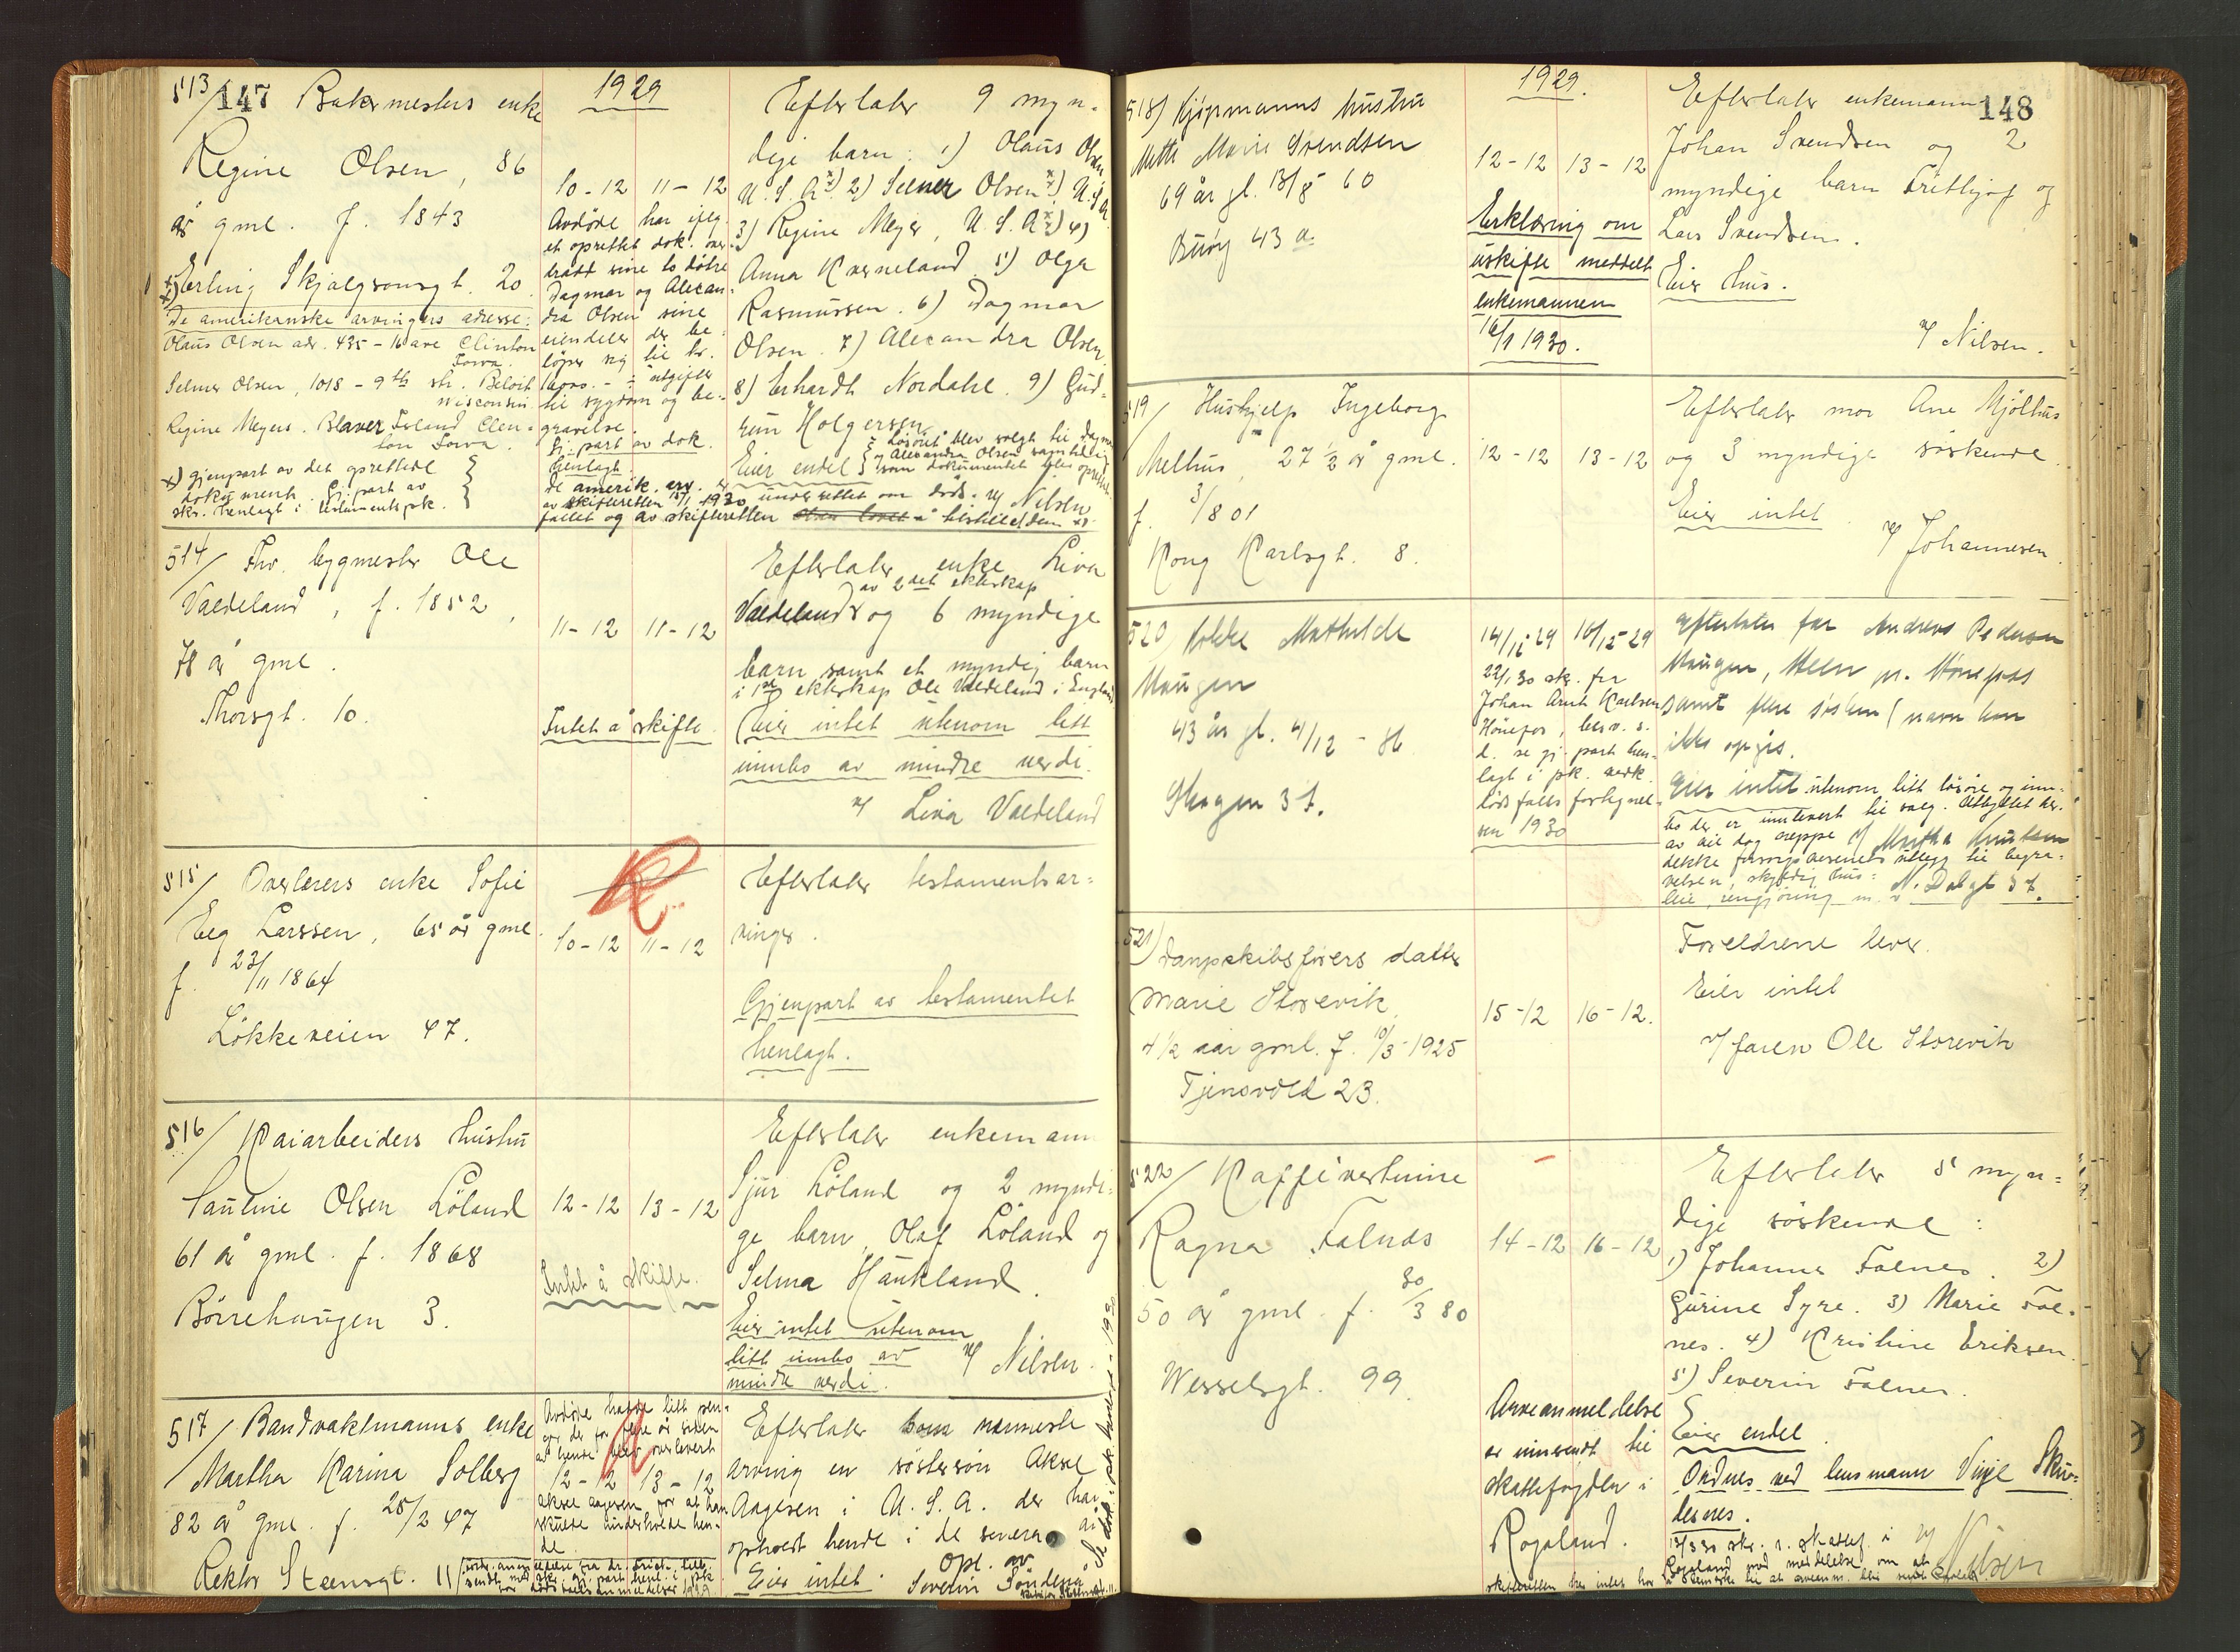 147
1929
513/ Bakermesters enke
Regine Olsen, 86
år gml. f. 1843
Erling Skjalgsonsgt. 20
De amerikanske arvingers adresse:
Olaus Olsen adr. 435 - 16 ave Clinton
Iowa.
Selmer Olsen, 1018 - 9th str. Beloit
Wisconsin
Regine Meyers. Island Clin-
ton Iowa.
x) gjenpart av det oprettede
dokument. Gj.part av
skr. henlagt i testamentspk.
10-12 11-12
Avdøde har ifølg.
et oprettet dok. over-
dradd sine to døtre
Dagmar og Alexan-
dra Olsen sine
eiendeler der be-
løper sig til kr.
1000.- ÷ utgifter
til sygdom og be-
gravelse.
Gj.part av dok.
henlagt.
De amerik. arv. er
av skifteretten 15/1 1930 underrettet om døds-
fallet og av skifteretten
Efterlater 9 myn-
dige barn: 1) Olaus Olsen
U.S.A x) 2) Selmer Olsen x) U.S.A
3) Regine Meyer, U.S.A x) 4)
Anna Kverneland 5) Olga
Rasmussen. 6) Dagmar
Olsen. 7) Alexandra Olsen
8) Erhardt Nordahl. 9) Gud-
run Holgersen.
Eier endel
Løsøret blev solgt til Dagmar
og Alexandra Olsen samtidig
som dokumentet blev oprettet
v/ Nilsen
514/ Fhv. bygmester Ole
Valdeland, f. 1852,
78 år gml.
Thorsgt. 10.
11-12 11-12
Intet å skifte.
Efterlater enke Liva
av 2det ekteskap
Valdeland og 6 myndige
barn samt et myndig barn
i 1ste ekteskap Ole Valdeland i England
Eier intet utenom litt
innbo av mindre verdi.
v/ Liva Valdeland
515/ Overlærers enke Sofie
Eeg Larssen, 65 år gml.
f. 23/11 1864
Løkkeveien 47.
10-12 11-12
Efterlater testamentsar-
vinger.
Gjenpart av testamentet
henlagt.
516/ Kaiarbeiders hustru
Pauline Olsen Løland
61 år gml. f. 1868
Børrehaugen 3.
12-12 13-12
Intet å skifte.
Efterlater enkemann
Sjur Løland og 2 myndi-
ge barn, Olaf Løland og
Selma Haukland.
Eier intet utenom
litt innbo av
mindre verdi.
v/ Nilsen.
517/ Bandvaktmanns enke
Martha Karina Solberg
82 år gml. f. 25/2 47
Rektor Steensgt. 11
Avdøde hadde litt pen-
ger der for flere år siden
av hende blev overlevert
12-12 13-12
Aksel Aagesen for at han
skulde underholde hen-
de.
Efterlater som nærmeste
arving en søstersøn Aksel
Aagesen i U.S.A. der har
opholdt hende i de senere år
Eier intet.
Opl. av
Severin Tøndesen
148
1929.
518) Kjøpmanns hustru
Mette Marie Svendsen
69 år gl. 13/8 60
Buøy 43 a.
12-12 13-12
Erklæring om
uskifte meddelt
enkemannen
16/1 1930.
Efterlater enkemann
Johan Svendsen og 2
myndige barn Fritthjof og
Lars Svendsen.
Eier hus.
v/ Nilsen.
519/ Hushjelp Ingeborg
Melhus, 27 1/2 år gml.
f. 3/8 01
Kong Karlsgt. 8.
12-12 13-12
Efterlater mor Ane Mjølhus
og 3 myndige søskende.
Eier intet.
v/ Johannesen.
520/ Kokke Mathilde
Haugen
43 år gl. 4/12 - 86
Skagen 37.
14/12 29 16/12 29
22/1 30 skr. fra
Johan Arnt Karlsen
Hønefos, besv. s.
d. se gj.part hen-
lagt i pk. vedk.
dødsfalls fortegnel-
sen 1930
Efterlater far Andreas Pedersen
Haugen, Heen pr. Hønefoss
samt flere søsken (navn kan
ikke opgis.
Eier intet utenom litt løsøre og inn-
bo der er innlevert til salg. Utbyttet her-
av vil dog neppe
dekke forsorgsvesenets utlegg til begra-
velsen, skyldig hus-
leie, rengjøring m. v.
v/ Martha Knutsen
N. Dalgt 37.
521) Dampskibsførers datter
Marie Storevik
4 1/2 aar gml. f. 10/3 - 1925
Tjensvold 23.
15-12 16-12.
Foreldrene lever.
Eier intet
v/ faren Ole Storevik
522/ Kaffivertinne
Ragna Falnes
50 år gml. f. 30/3 80
Wesselsgt. 99.
14-12 16-12
Arveanmeldelse
er innsendt til
skattefogden i
Rogaland.
Efterlater 5 myn-
dige søskende:
1) Johanne Falnes. 2)
Gurine Syre. 3) Marie Fal-
nes. 4) Kristine Eriksen.
5) Severin Falnes.
Eier endel.
Ordnes ved lensmann Vinje Sku-
desnes.
13/3 30 skr. t. skattef. i
Rogaland med meddelelse om at
v/ Nilsen